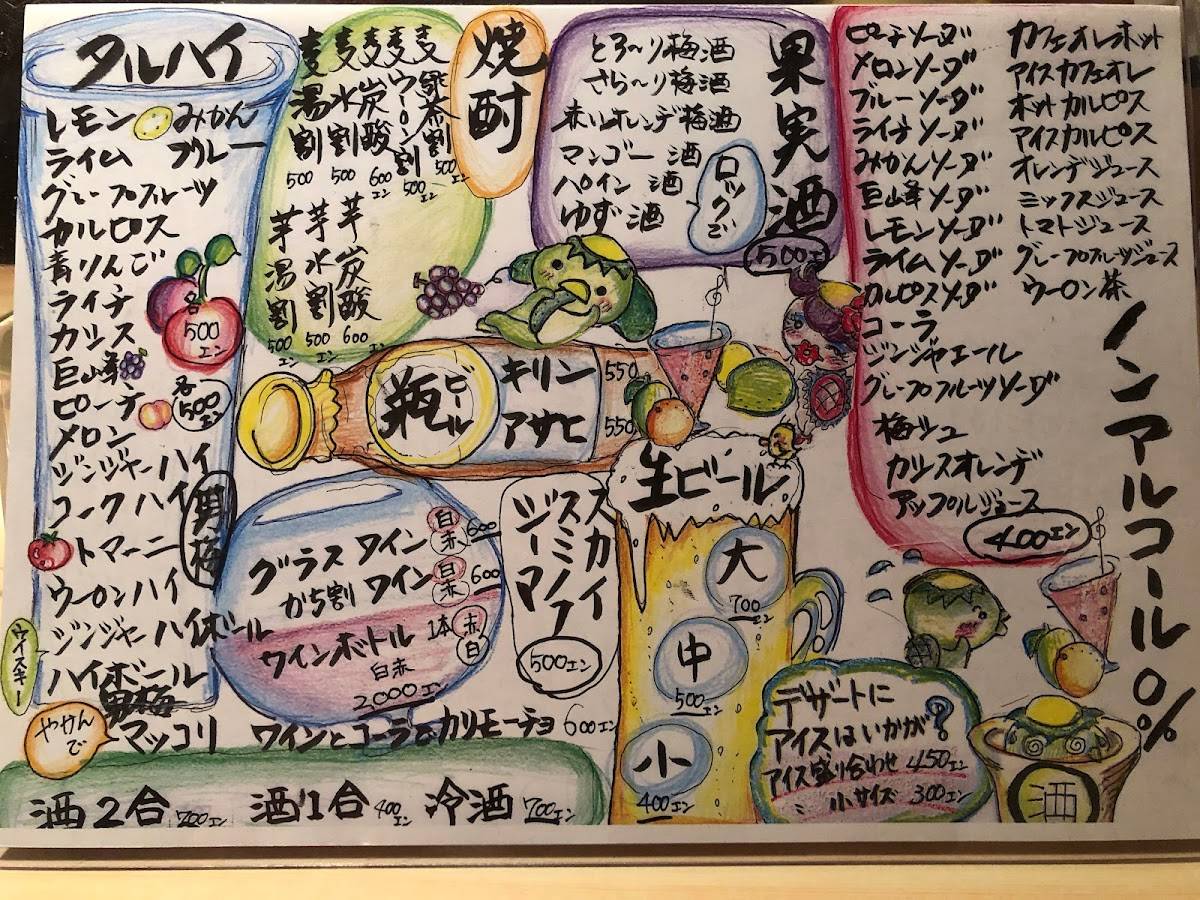 タルハイ
レモン みかん
ライム ブルー
グレープフルーツ
カルピス
青りんご
ライチ
カシス
巨峰
ピーチ
メロン
ジンジャーハイ
コークハイ
トマーニ
ウーロンハイ
ジンジャーハイボール
ハイボール
男梅
各500エン
各500エン
男梅
ウイスキー
やかんで
マッコリ
焼酎
麦湯割 500
麦水割 500
麦炭酸 600エン
麦ウーロン割 500
麦緑茶割 500エン
芋湯割 500エン
芋水割 500エン
芋炭酸 600
果実酒
とろ〜り梅酒
さら〜り梅酒
赤いオレンヂ梅酒
マンゴー酒
パイン酒
ゆず酒
ロックで
500エン
瓶ビール
キリン 550
アサヒ 550
グラスワイン 白 赤 600
かち割ワイン 白 赤 600
ワインボトル 1本 赤 白
白赤
2,000エン
スカイ
スミノフ
ジーマ
500エン
ワインとコーラでカリモーチョ 600エン
酒2合 700エン 酒1合 400エン 冷酒 700エン
生ビール
大
700エン
中
500エン
小
400エン
デザートに
アイスはいかが?
アイス盛り合わせ 450エン
〃 小サイズ 300エン
ノンアルコール0%
ピーチソーダ
メロンソーダ
ブルーソーダ
ライチソーダ
みかんソーダ
巨峰ソーダ
レモンソーダ
ライムソーダ
カルピスソーダ
コーラ
ジンジャエール
グレープフルーツソーダ
梅シュ
カシスオレンヂ
アップルジュース
カフェオレホット
アイスカフェオレ
ホットカルピス
アイスカルピス
オレンヂジュース
ミックスジュース
トマトジュース
グレープフルーツジュース
ウーロン茶
400エン
酒